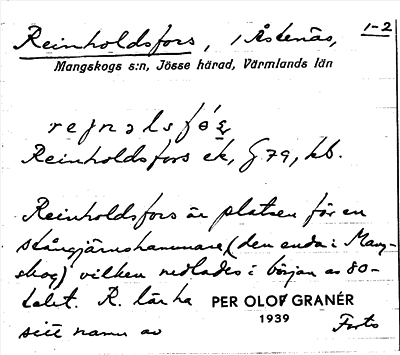 Reinholdsfors, i Åstenäs, 1-2
Mangskogs s:n, Jösse härad, Värmlands län
Reinholdsfors ek, G 79, kb.
Reinholdsfors är platsen för en
stångjärnshammare (den enda i Mang-
skog) vilken nedlades i början av 80-
talet. R. lär ha PER OLOF GRANÉR
1939
sitt namn av Forts